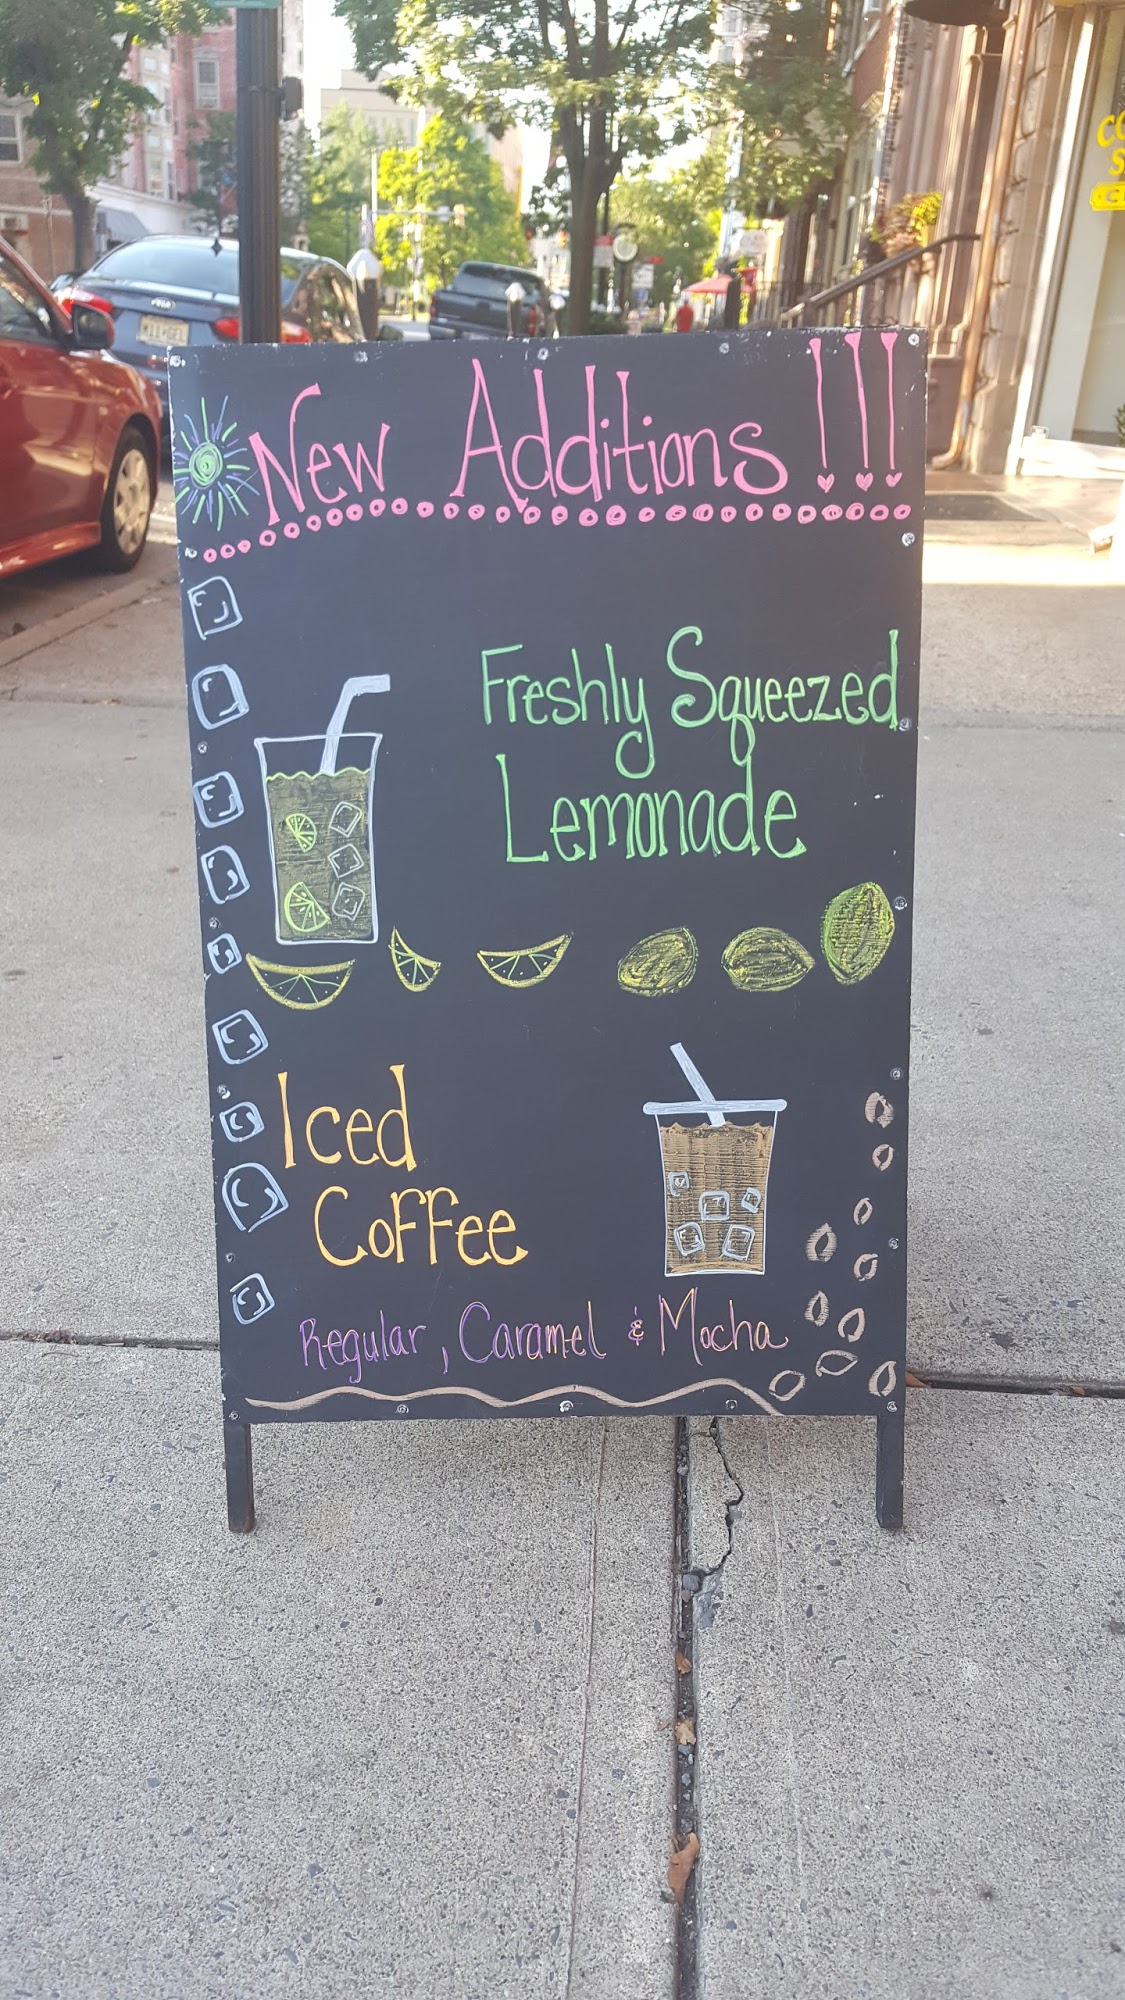 New Additions!!!
Freshly Squeezed
Lemonade
Iced
Coffee
Regular, Caramel & Mocha